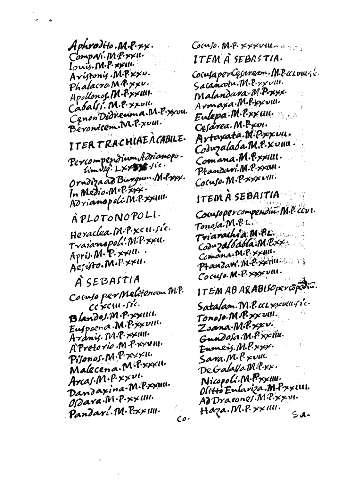 Aphrodito. M.P. xx.
Compasi. M.P. xxii.
Louis. M.P. xxiii.
Aristonis. M.P. xxv.
Phalacro. M.P. xxv.
Apollonos. M.P. xxiiii.
Cabalsi. M.P. xxvii.
Cenon Didreuma. M.P. xxvii.
Beronicem. M.P. xviii.
ITER TRACHIAE À CABILE.
Per compendium Adrianopo-
In Medio. M.P. xxx.
Adrianopoli. M.P. xxiiii.
À PLOTONOPOLI.
Heraclea. M.P. xcii. sic.
Traianopoli. M.P. xxii.
Apri. M.P. xxiii.
Resisto. M.P. xxii.
À SEBASTIA.
Cocuso per Melitenam. M.P.
ccxciii. sic.
Blandos. M.P. xxiiii.
Euspena. M.P. xxviii.
Aranis. M.P. xxiiii.
A Pretorio. M.P. xxviii.
Pisonos. M.P. xxxii.
Malecena. M.P. xxxii.
Arcas. M.P. xxvi.
Dandaxina. M.P. xxiiii.
Osdara. M.P. xxiiii.
Pandari. M.P. xxiiii.
Co.
Cocuso. M.P. xxxviii.
ITEM À SEBASTIA.
Cocuso per Cesaream. M.P. cclviii. sic.
Malandara. M.P. xxx.
Armaxa. M.P. xxviii.
Eulepa. M.P. xxiiii.
Cesarea. M.P. xvi.
Artaxata. M.P. xxvii.
Coduzalaba. M.P. xxviii.
Comana. M.P. xxiiii.
Ptandari. M.P. xxiiii.
Cocuso. M.P. xxxviii.
ITEM À SEBASTIA
Cocuso per compendium. M.P. ccvi.
Tonosa. M.P. L.
Triarachia. M.P. L.
Coduzalabla. M.P. xx.
Comana. M.P. xxiiii.
Ptandari. M.P. xxiiii.
Cocuso. M.P. xxxviii.
ITEM AB ARABISO
Satalam. M.P. sic.
Tonoso. M.P. xxviii.
Zoana. M.P. xxv.
Gundosa. M.P. xxiii.
Eumeis. M.P. xxx.
Sara. M.P. xviii.
Dagalasso. M.P. xx.
Nicopoli. M.P. xxiiii.
Olotoedariza. M.P. xxiiii.
Ad Dracones. M.P. xxvi.
Haza. M.P. xxiiii.
Sa.